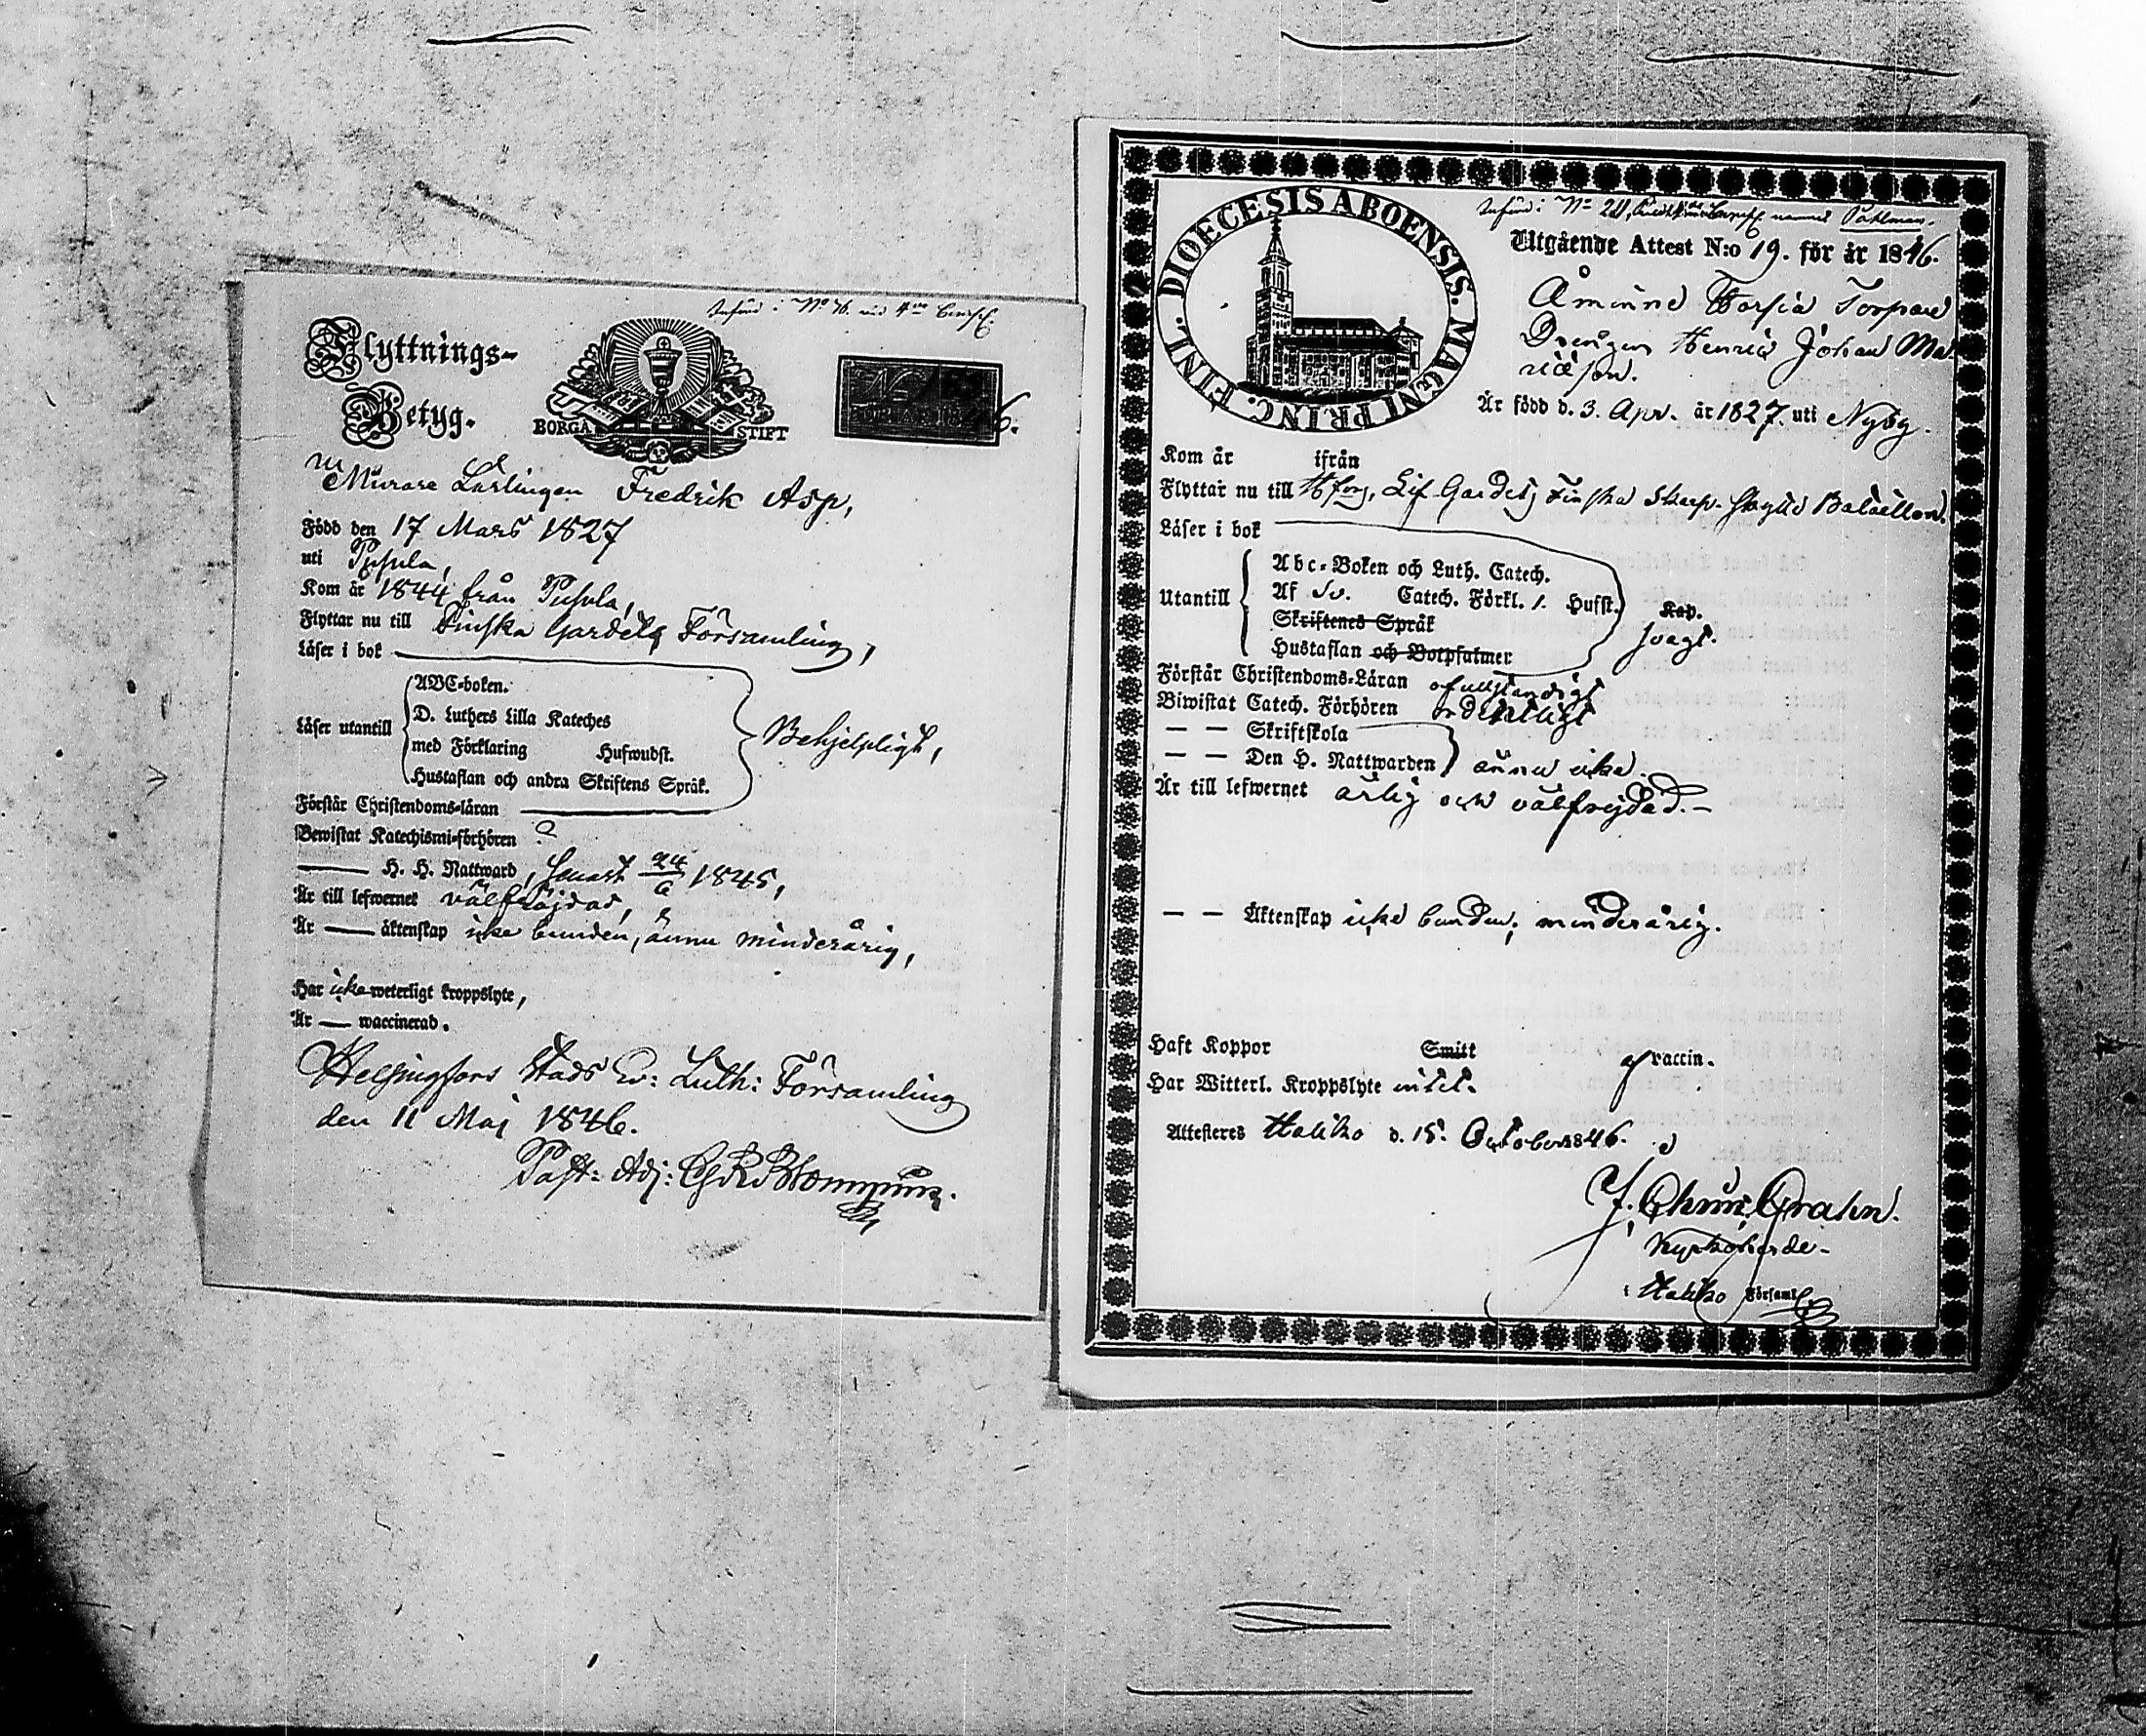 Införd: No 76. vid 4de Comp.
Flyttnings-
Betyg.
BORGÅ STIFT
No
FÖR ÅR 1846.
Murare Lärlingen Fredrik Asp,
Född den 17 Mars 1827
uti Pusula,
Kom år 1844 från Pusula,
Flyttar nu till Finska Gardets Församling,
Läser i bok
Läser utantill
ABC-boken.
D. Luthers Lilla Kateches
med Förklaring Hufwudst.
Hustaflan och andra Skriftens Språk.
Behjelpligt,
Förstår Christendoms-läran
Bewistat Katechismi-förhören
H. H. Nattward, senast 24/6 1845,
Är till lefwernet välfräjdad,
Är äktenskap icke bunden, ännu minderårig,
Har icke weterligt kroppslyte,
Är waccinerad.
Helsingfors Stads Ev: Luth: Församling
den 11 Maj 1846.
Past: Adj:
DIOECESIS ABOENSIS. MAGNI PRINC. FINL.
Införd: No 20, namned Påhlman.
Utgående Attest N:o 19. för år 1846.
Åminne Torpare
Drengen Henric Johan Ma
Är född d. 3. Apr. år 1827. uti Nyby.
Kom år ifrån
Flyttar nu till Hfors, Lif Gardets Finska Skarp-skytte Bataillon.
Läser i bok
Utantill
Abc-Boken och Luth. Catech.
Af Sv. Catech. Förkl. 1. Hufst.
Skriftenes Språk Kap.
Hustaflan och Botpsalmer
svagt.
Förstår Christendoms-Läran ofullständigt
Biwistat Catech. Förhören ordentligt
— — Skriftskola
— — Den H. Nattwarden ännu icke.
Är till lefwernet ärlig och välfrejdad.—
— — Äktenskap icke bunden, minderårig.
Haft Koppor Smitt af vaccin.
Har Witterl. Kroppslyte intet.
Attesteres Haliko d. 15. October 1846.
Grahn.
Kyrkoherde
i Haliko Församl.